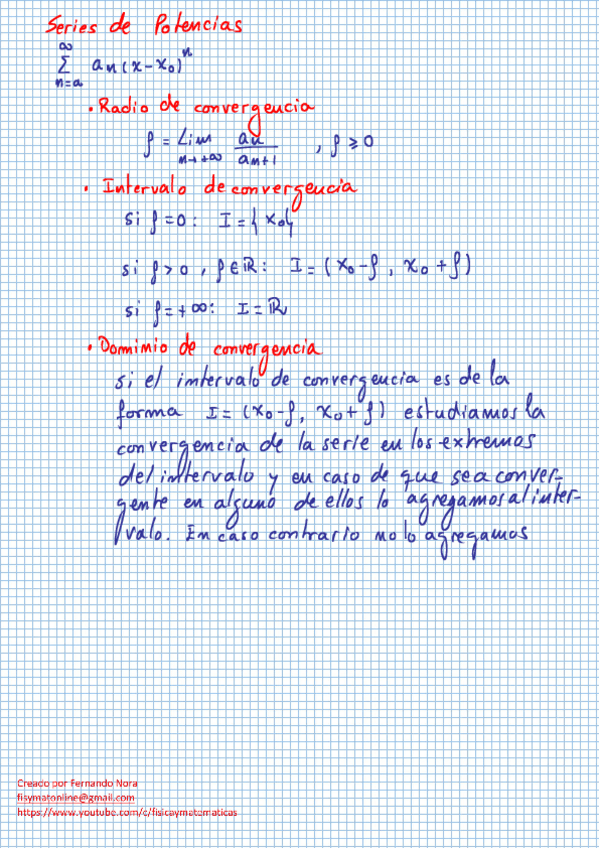 Series de Potencias
∞
Σ aₙ(x-x₀)ⁿ
n=a
• Radio de convergencia
ρ = Lim aₙ/aₙ₊₁ , ρ ≥ 0
n→+∞
• Intervalo de convergencia
si ρ=0: I={x₀}
si ρ>0, ρ∈ℝ: I=(x₀-ρ, x₀+ρ)
si ρ=+∞: I=ℝ
• Dominio de convergencia
si el intervalo de convergencia es de la
forma I=(x₀-ρ, x₀+ρ) estudiamos la
convergencia de la serie en los extremos
del intervalo y en caso de que sea conver-
gente en alguno de ellos lo agregamos al inter-
valo. En caso contrario no lo agregamos
Creado por Fernando Nora
fisymatonline@gmail.com
https://www.youtube.com/c/fisicaymatematicas